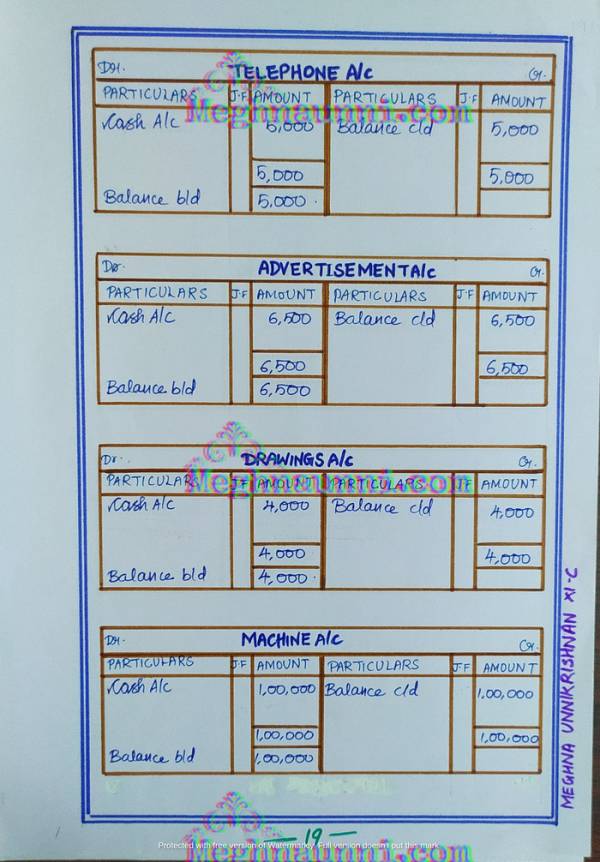 Dr. TELEPHONE A/c Cr.
PARTICULARS J.F AMOUNT PARTICULARS J.F AMOUNT
Meghnaunni.com
Cash A/c 5,000 Balance c/d 5,000
5,000 5,000
Balance b/d 5,000
Dr. ADVERTISEMENT A/c Cr.
PARTICULARS J.F AMOUNT PARTICULARS J.F AMOUNT
Cash A/c 6,500 Balance c/d 6,500
6,500 6,500
Balance b/d 6,500
Dr. DRAWINGS A/c Cr.
PARTICULARS J.F AMOUNT PARTICULARS J.F AMOUNT
Meghnaunni.com
Cash A/c 4,000 Balance c/d 4,000
4,000 4,000
Balance b/d 4,000
Dr. MACHINE A/c Cr.
PARTICULARS J.F AMOUNT PARTICULARS J.F AMOUNT
Cash A/c 1,00,000 Balance c/d 1,00,000
1,00,000 1,00,000
Balance b/d 1,00,000
MEGHNA UNNIKRISHNAN XI-C
— 19 —
Protected with free version of Watermarkly. Full version doesn't put this mark.
Meghnaunni.com